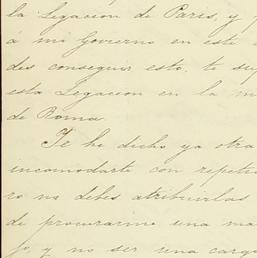 la Legacion de Paris, y
á mi Gobierno en este
des conseguir esto, te su
esta Legacion en la m
de Roma.
Te he dicho ya otra
incomodarte con repeti
ro no debes atribuirlas
de procurarme una ma
jo, y no ser una carga